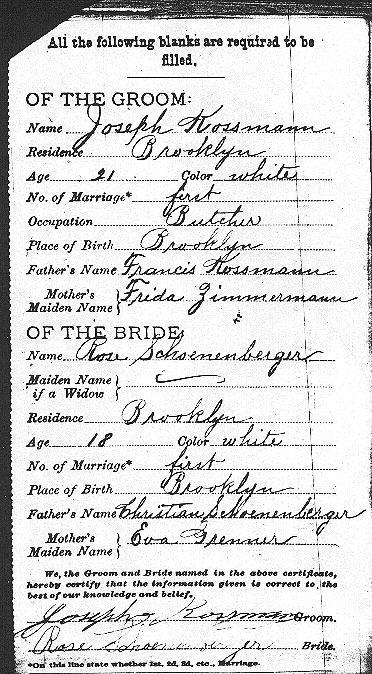 All the following blanks are required to be
filled.
OF THE GROOM:
Name Joseph Kossmann
Residence Brooklyn
Age 21 Color white
No. of Marriage* first
Occupation Butcher
Place of Birth Brooklyn
Father's Name Francis Kossmann
Mother's Maiden Name } Frida Zimmermann
OF THE BRIDE
Name Rose Schoenenberger
Maiden Name if a Widow }
Residence Brooklyn
Age 18 Color white
No. of Marriage* first
Place of Birth Brooklyn
Father's Name Christian Schoenenberger
Mother's Maiden Name } Eva Brenner
We, the Groom and Bride named in the above certificate,
hereby certify that the information given is correct to the
best of our knowledge and belief.
Joseph Groom.
Rose Bride.
*On this line state whether 1st, 2d, 3d, etc., Marriage.